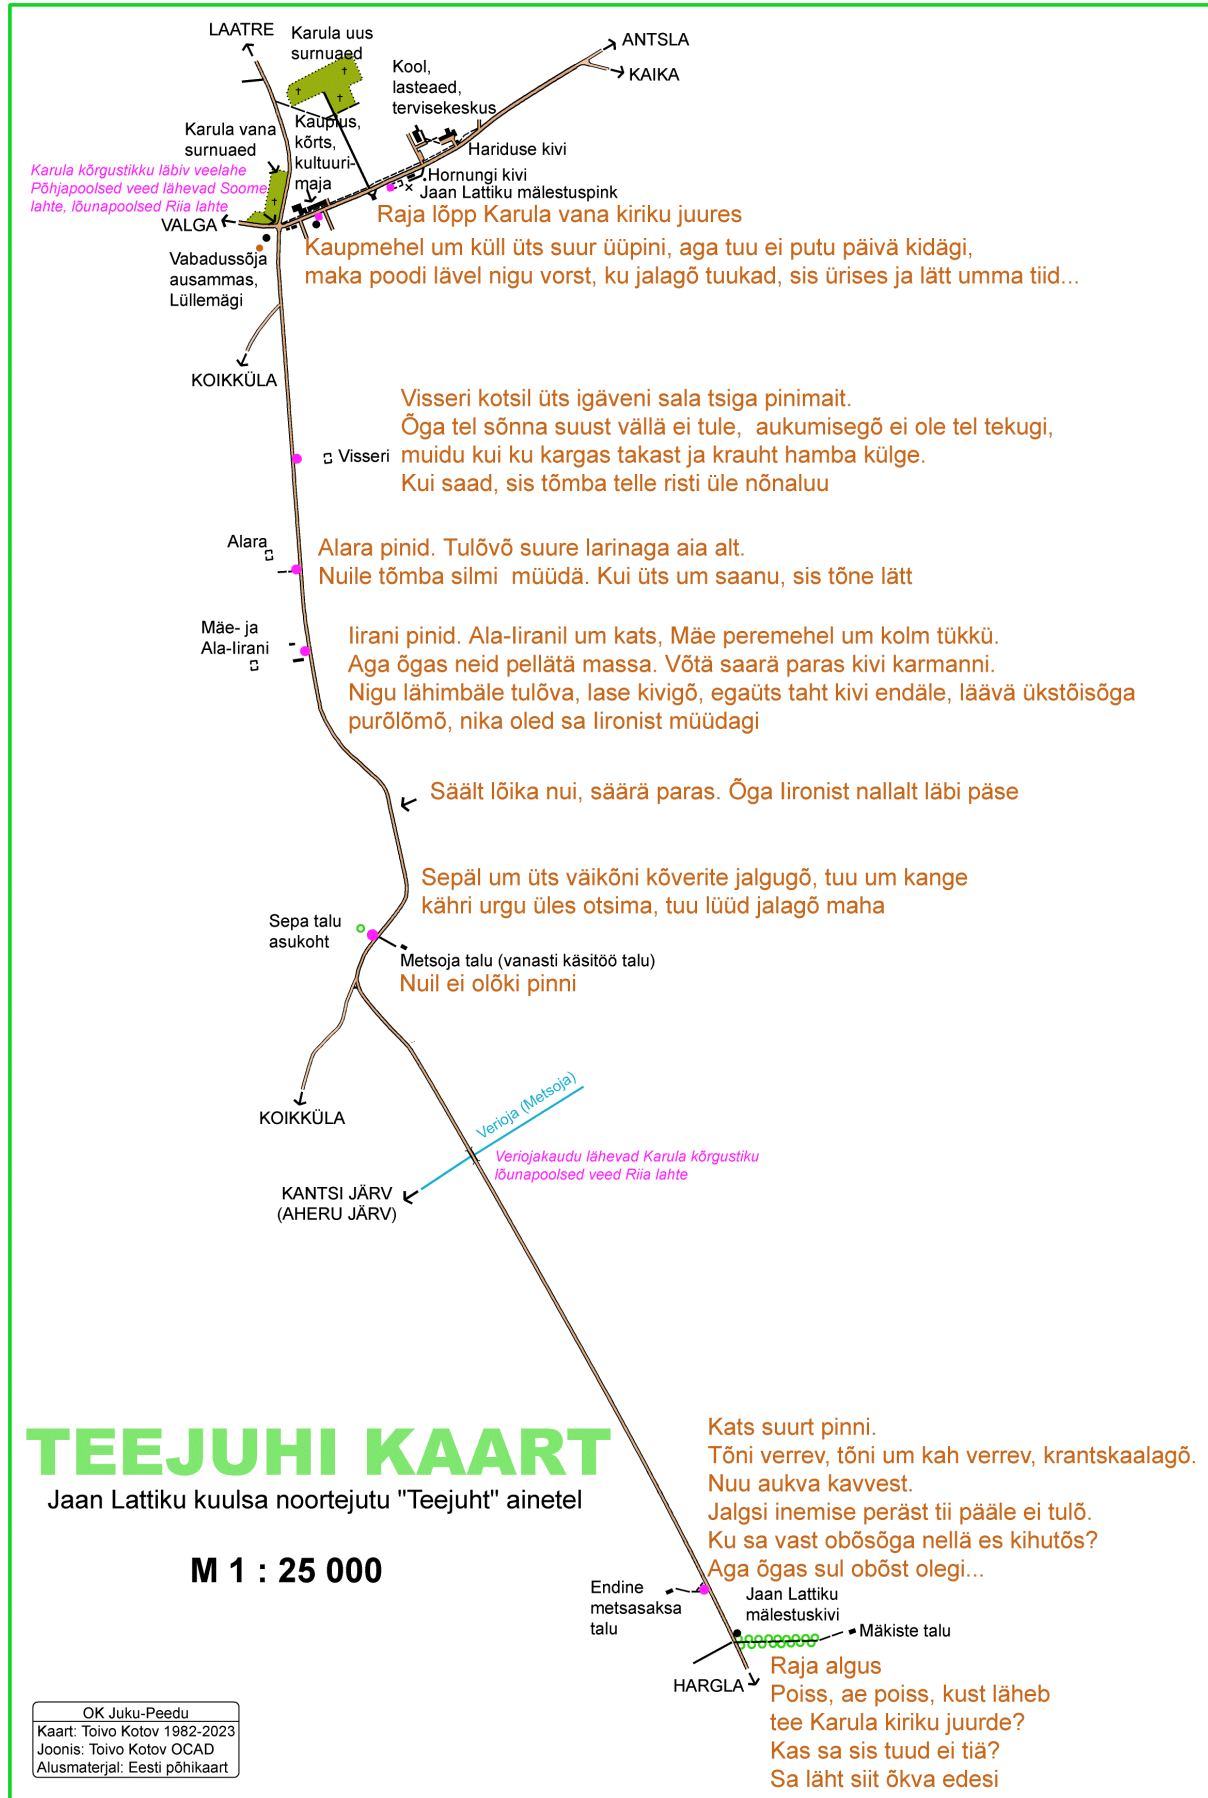 LAATRE
Karula uus
surnuaed
ANTSLA
KAIKA
Kool,
lasteaed,
tervisekeskus
Karula vana
surnuaed
Kauplus,
kõrts,
kultuuri-
maja
Hariduse kivi
Hornungi kivi
Jaan Lattiku mälestuspink
Karula kõrgustikku läbiv veelahe
Põhjapoolsed veed lähevad Soome
lahte, lõunapoolsed Riia lahte
VALGA
Raja lõpp Karula vana kiriku juures
Vabadussõja
ausammas,
Lüllemägi
Kaupmehel um küll üts suur üüpini, aga tuu ei putu päivä kidägi,
maka poodi lävel nigu vorst, ku jalagõ tuukad, sis ürises ja lätt umma tiid...
KOIKKÜLA
Visseri kotsil üts igäveni sala tsiga pinimait.
Õga tel sõnna suust vällä ei tule,  aukumisegõ ei ole tel tekugi,
muidu kui ku kargas takast ja krauht hamba külge.
Kui saad, sis tõmba telle risti üle nõnaluu
Visseri
Alara
Alara pinid. Tulõvõ suure larinaga aia alt.
Nuile tõmba silmi  müüdä. Kui üts um saanu, sis tõne lätt
Mäe- ja
Ala-Iirani
Iirani pinid. Ala-Iiranil um kats, Mäe peremehel um kolm tükkü.
Aga õgas neid pellätä massa. Võtä saarä paras kivi karmanni.
Nigu lähimbäle tulõva, lase kivigõ, egaüts taht kivi endäle, läävä ükstõisõga
purõlõmõ, nika oled sa Iironist müüdagi
Säält lõika nui, säärä paras. Õga Iironist nallalt läbi päse
Sepäl um üts väikõni kõverite jalgugõ, tuu um kange
kähri urgu üles otsima, tuu lüüd jalagõ maha
Sepa talu
asukoht
Metsoja talu (vanasti käsitöö talu)
Nuil ei olõki pinni
KOIKKÜLA
Verioja (Metsoja)
Veriojakaudu lähevad Karula kõrgustiku
lõunapoolsed veed Riia lahte
KANTSI JÄRV
(AHERU JÄRV)
TEEJUHI KAART
Jaan Lattiku kuulsa noortejutu "Teejuht" ainetel
M 1 : 25 000
Kats suurt pinni.
Tõni verrev, tõni um kah verrev, krantskaalagõ.
Nuu aukva kavvest.
Jalgsi inemise peräst tii pääle ei tulõ.
Ku sa vast obõsõga nellä es kihutõs?
Aga õgas sul obõst olegi...
Endine
metsasaksa
talu
Jaan Lattiku
mälestuskivi
Mäkiste talu
HARGLA
Raja algus
Poiss, ae poiss, kust läheb
tee Karula kiriku juurde?
Kas sa sis tuud ei tiä?
Sa läht siit õkva edesi
OK Juku-Peedu
Kaart: Toivo Kotov 1982-2023
Joonis: Toivo Kotov OCAD
Alusmaterjal: Eesti põhikaart